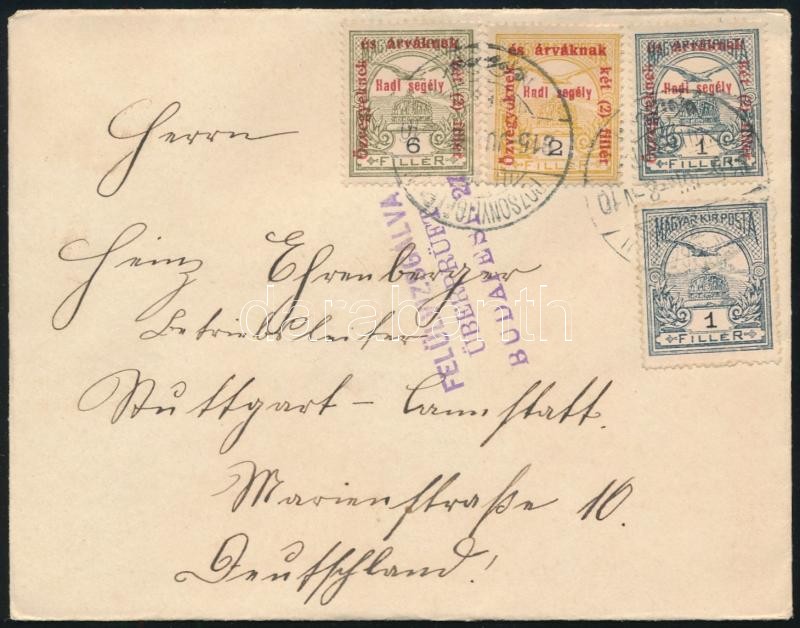 MAGYAR KIR. POSTA
Hadi segély
Özvegyeknek és árváknak két (2) fillér
6
FILLÉR
Hadi segély
Özvegyeknek és árváknak két (2) fillér
2
FILLÉR
Hadi segély
Özvegyeknek és árváknak két (2) fillér
1
FILLÉR
MAGYAR KIR. POSTA
1
FILLÉR
POZSONY
FELÜLVIZSGÁLVA
ÜBERPRÜFT
BUDAPEST 27
Herrn
Heinz Ehrenberger
Betriebsleiter
Stuttgart – Cannstatt.
Marienstraße 10.
Deutschland!
darabanth